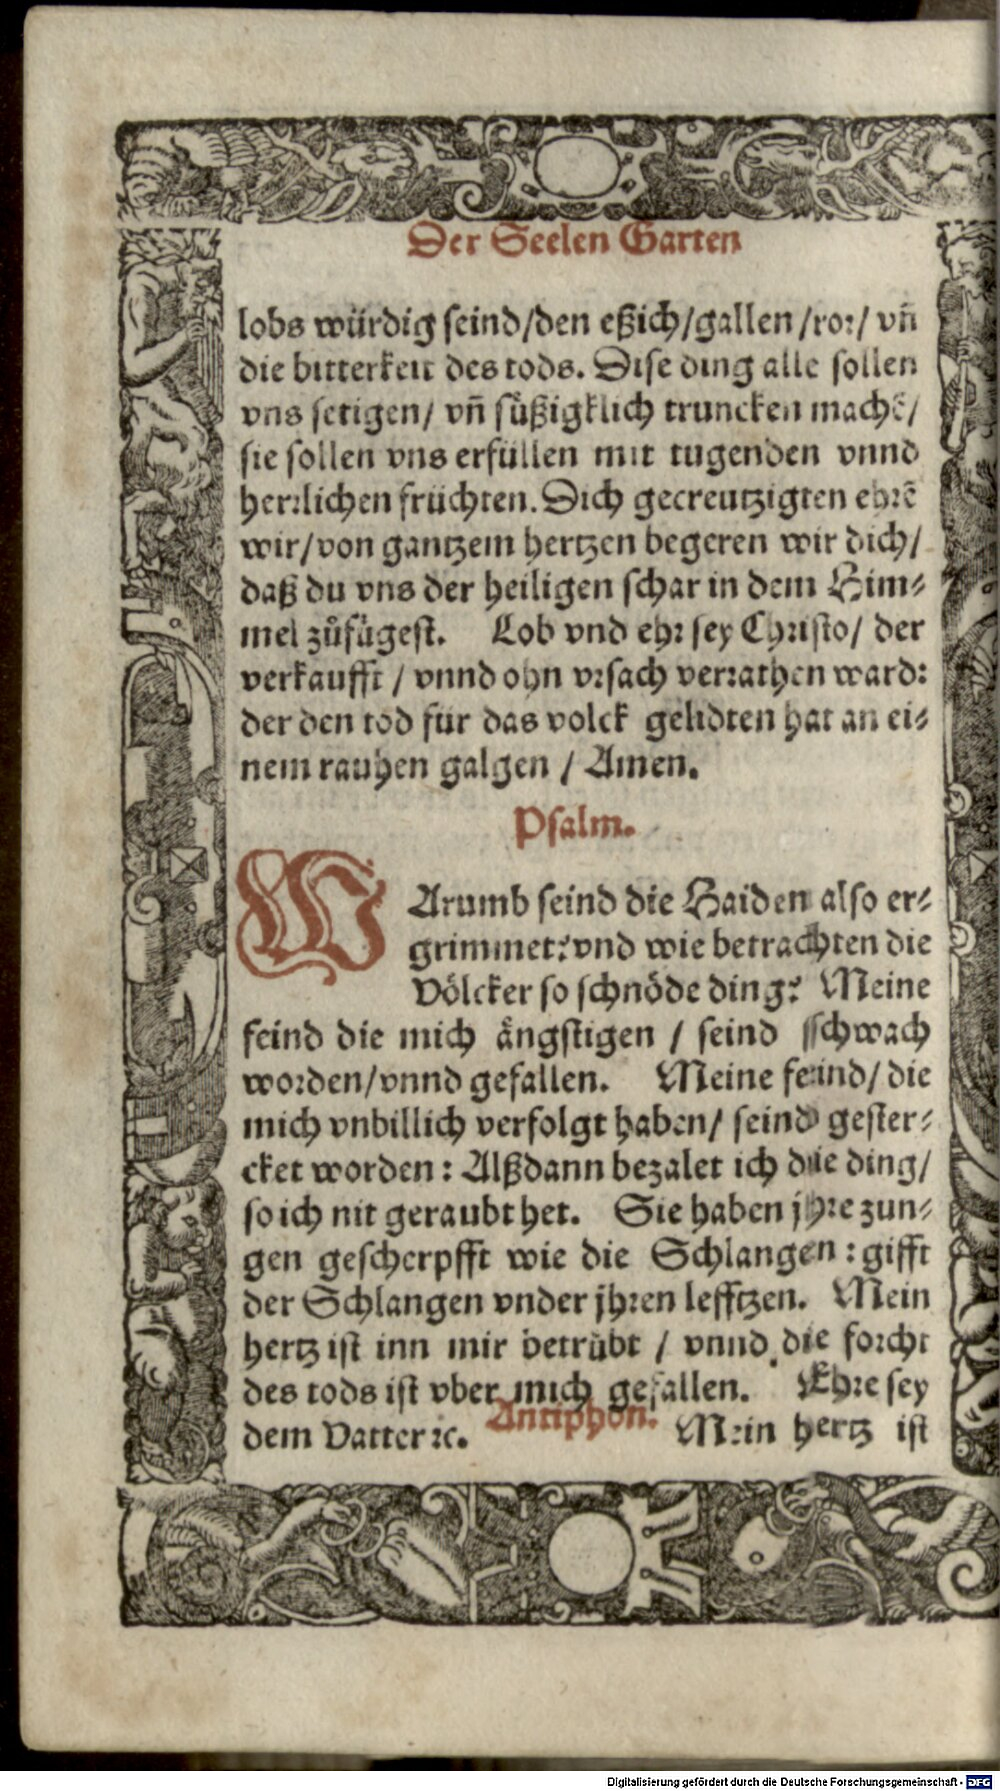 Der Seelen Garten
lobs würdig seind/den eßich/gallen/ror/ vñ
die bitterkeit des tods. Dise ding alle sollen
vns setigen/ vñ süßigklich truncken machē/
sie sollen vns erfüllen mit tugenden vnnd
herrlichen früchten. Dich gecreutzigten ehrē
wir/von gantzem hertzen begeren wir dich/
daß du vns der heiligen schar in dem Him⸗
mel zůfügest. Lob vnd ehr sey Christo/ der
verkaufft / vnnd ohn vrsach verrathen ward:
der den tod für das volck gelidten hat an ei⸗
nem rauhen galgen / Amen.
Psalm.
WArumb seind die Haiden also er⸗
grimmet? vnd wie betrachten die
Völcker so schnöde ding? Meine
feind die mich ängstigen / seind schwach
worden/vnnd gefallen. Meine feind/ die
mich vnbillich verfolgt haben/ seind gester⸗
cket worden: Alßdann bezalet ich die ding/
so ich nit geraubt het. Sie haben jhre zun⸗
gen gescherpfft wie die Schlangen: gifft
der Schlangen vnder jhren lefftzen. Mein
hertz ist inn mir betrübt / vnnd die forcht
des tods ist vber mich gefallen. Ehre sey
dem Vatter ꝛc. Antiphon. Mein hertz ist
Digitalisierung gefördert durch die Deutsche Forschungsgemeinschaft - DFG